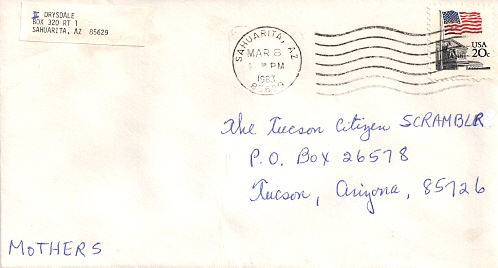 DRYSDALE
BOX 320 RT 1
SAHUARITA, AZ 85629
SAHUARITA, AZ
MAR 8
PM
1983
85629
USA
20c
The Tucson Citizen SCRAMBLR
P.O. Box 26578
Tucson, Arizona, 85726
MOTHERS